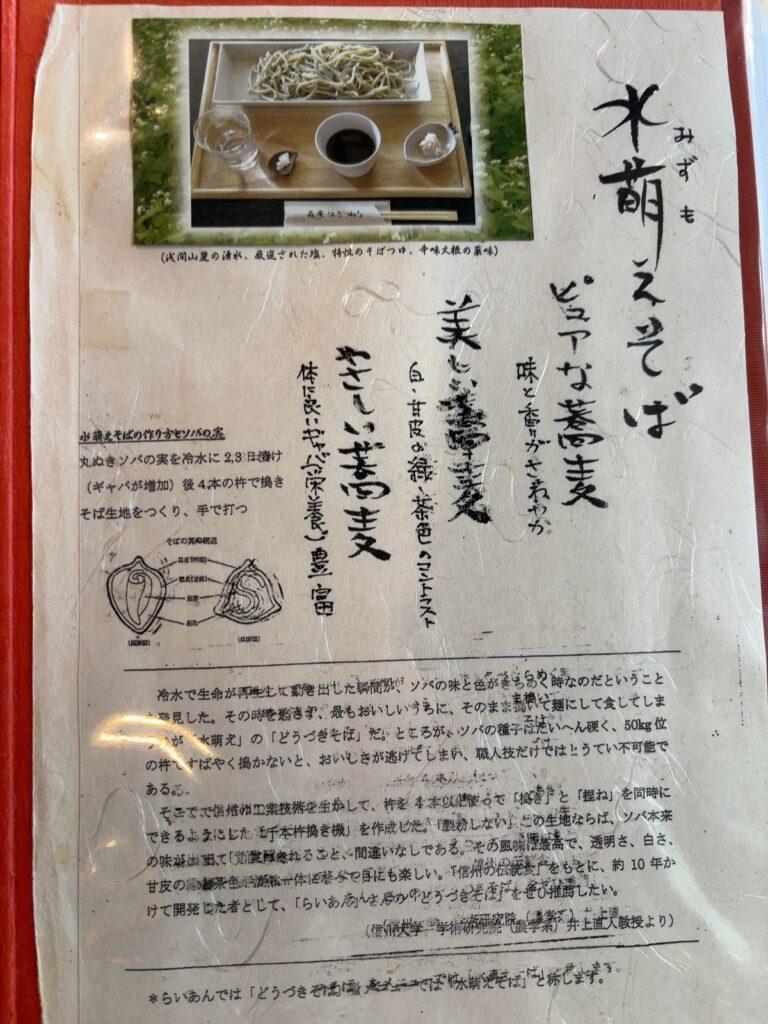 水萌えそば
みずも
ピュアな蕎麦
味と香りがさわやか
美しい蕎麦
白・甘皮の緑・茶色のコントラスト
やさしい蕎麦
体に良いギャバ(栄養)ご豊富
(浅間山麓の湧水、厳選された塩、特性のそばつゆ、辛味大根の薬味)
水萌えそばの作り方とソバの実
丸ぬきソバの実を冷水に2,3日漬け
(ギャバが増加)後4本の杵で搗き
そば生地をつくり、手で打つ
そばの実の構造
冷水で生命が再生して動き出した瞬間が、ソバの味と色がきらめく時なのだということ
を発見した。その時を逃さず、最もおいしいうちに、そのまま搗いて麺にして食してしま
うのが「水萌え」の「どうづきそば」だ。ところが、ソバの種子はたいへん硬く、50kg位
の杵ですばやく搗かないと、おいしさが逃げてしまい、職人技だけではとうてい不可能で
ある。
そこで信州の工業技術を生かして、杵を4本以上使って「搗き」と「捏ね」を同時に
できるようにした「千本杵搗き機」を作成した。「製粉しない」この生地ならば、ソバ本来
の味が出て間違いなしである。その風味は最高で、透明さ、白さ、
甘皮の緑茶色が一体となって目にも楽しい。「信州の伝統食」をもとに、約10年か
けて開発した者として、「らいあんさんの「どうづきそば」をぜひ推薦したい。
(信州大学 学術研究院(農学系)井上直人教授より)
*らいあんでは「どうづきそば」を では「水萌えそば」と称します。